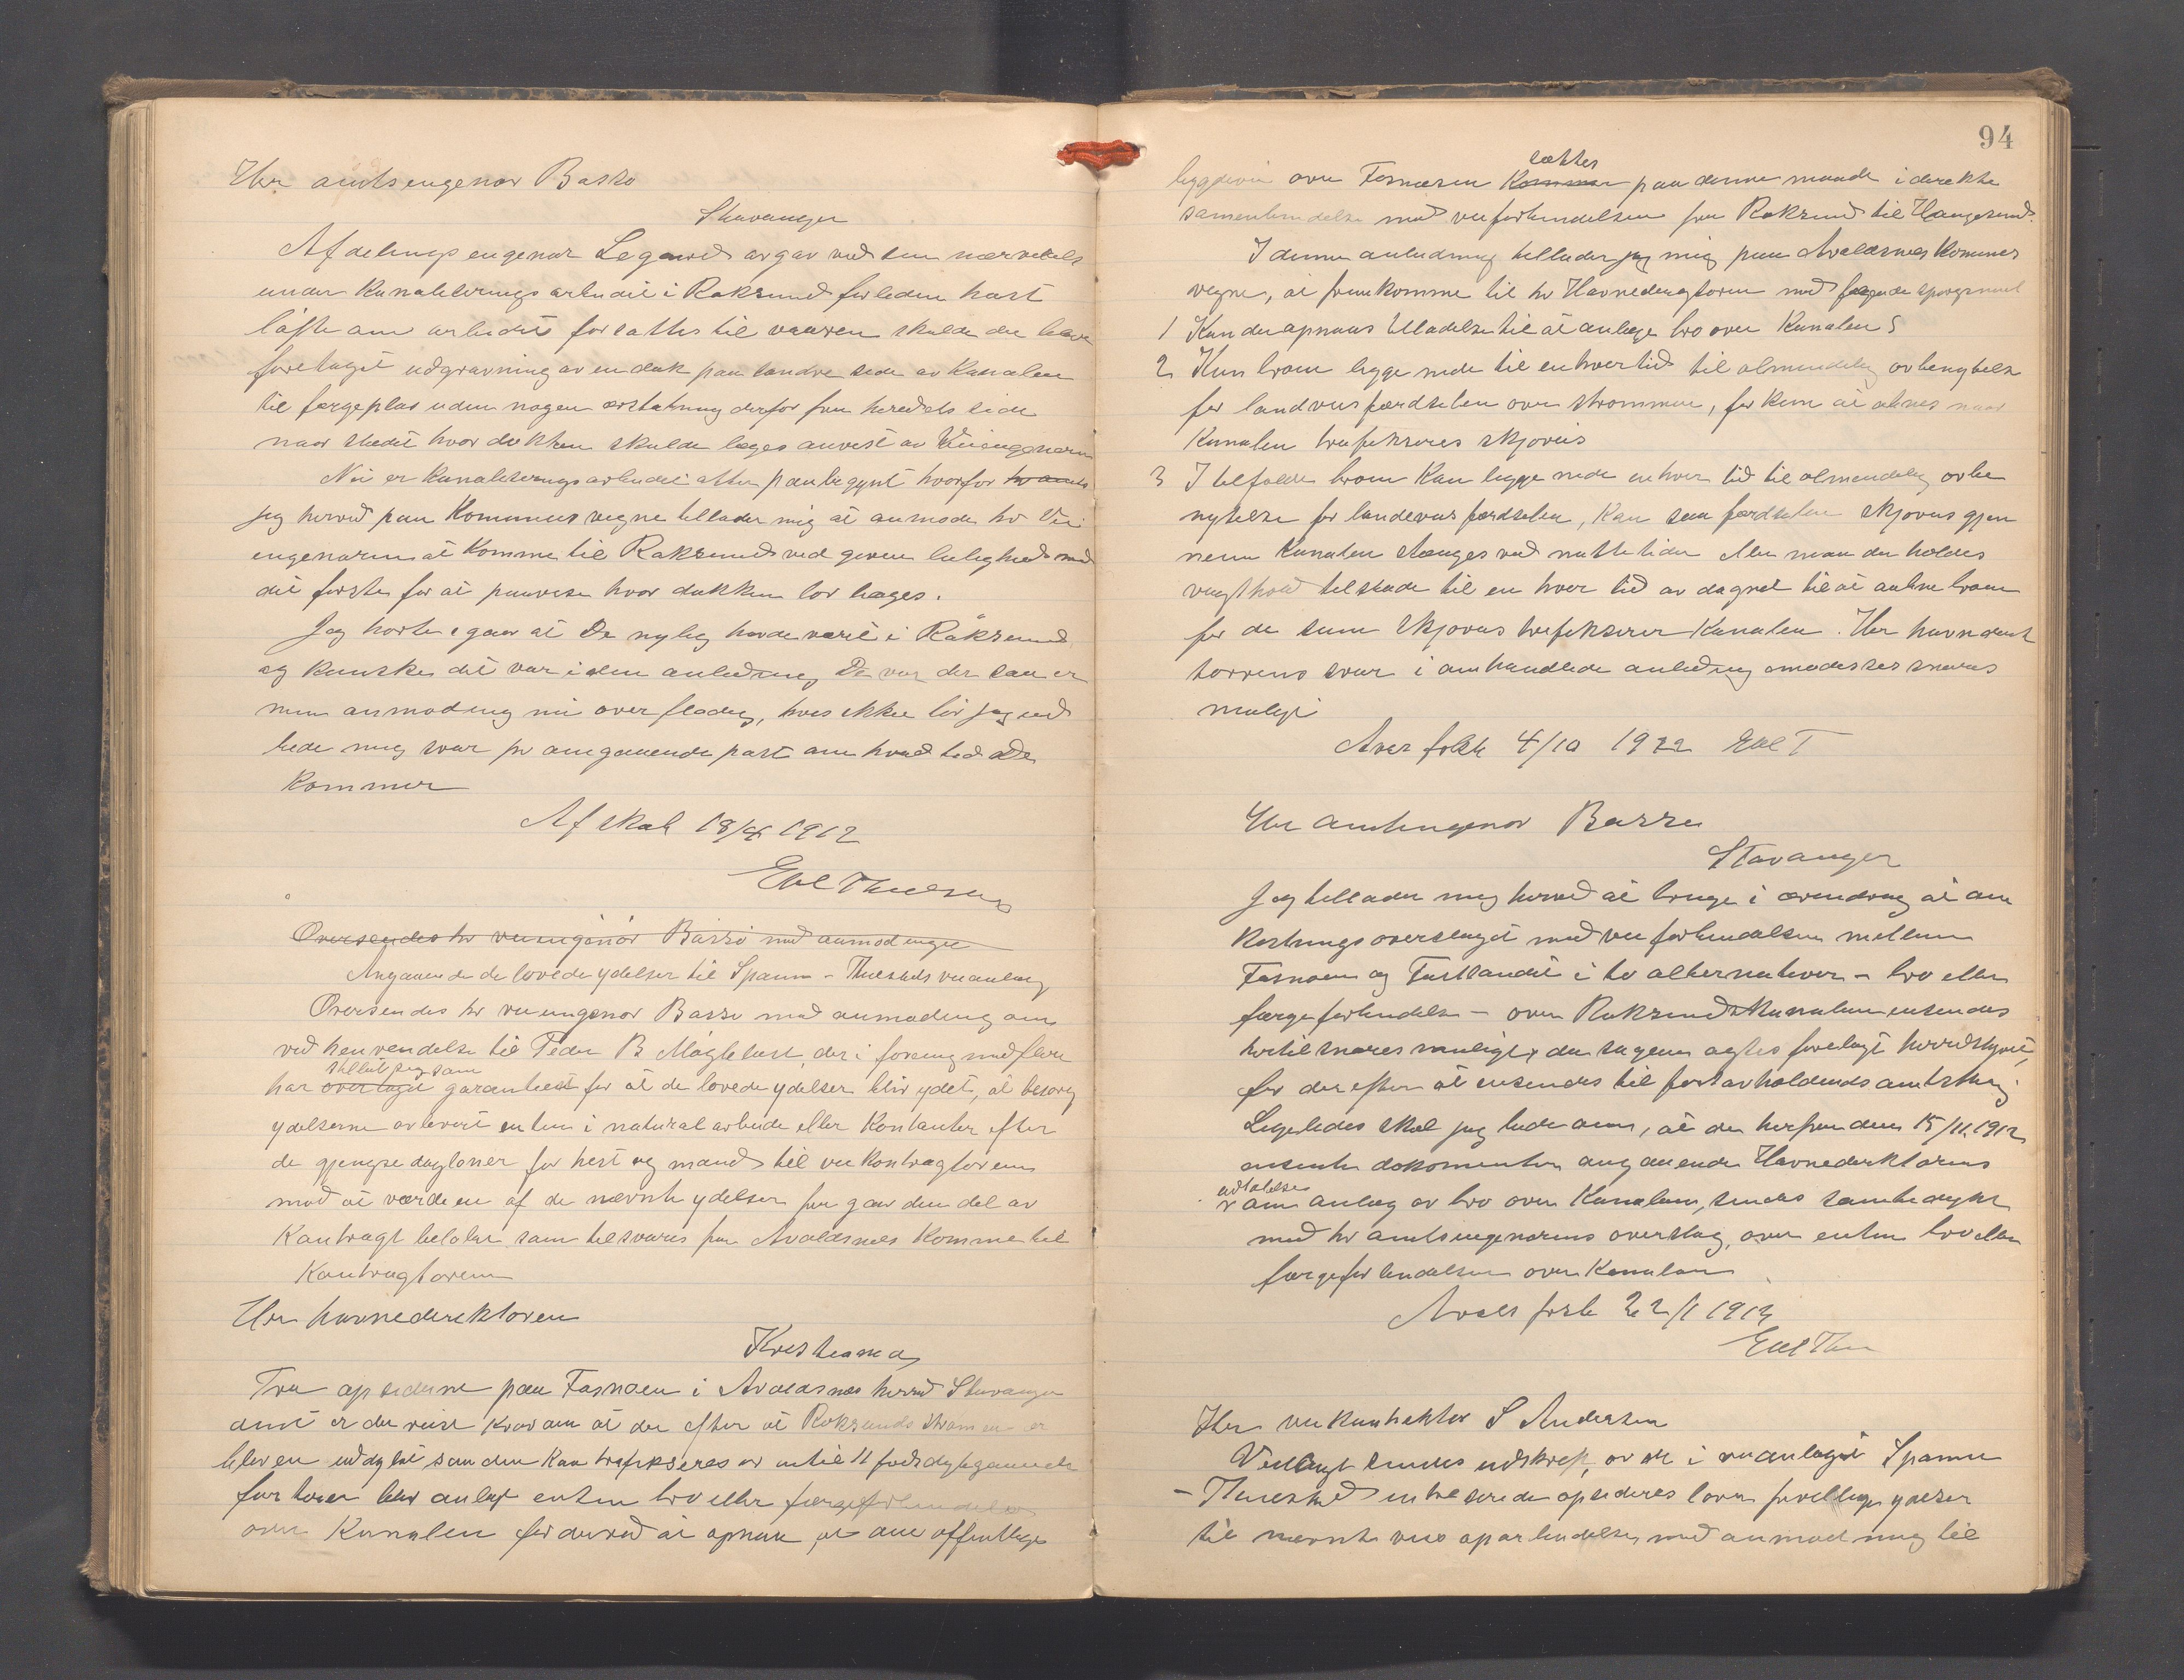 Hr amtsengenør Basso
Stavanger
Afdelings engenør Legared avgav ved sin nærverels
under Kanaliserings arbudet i Røksund forleden høst
løfte om arbudets forsættes til vaaren skulde der blive
foretaget udgravning av en dok paa landre side av Kanalen
til færgeplas uden nogen erstatning derfor fra heredets side
naar stedet hvor dokken skulde læges anvest av Veiengenøren
Nu er kanaliseringsarbudet atter paabegynt hvorfor hr amts
jeg herved paa Kommunes vegne tellader mig at anmode hr Vei
engenøren at komme til Røksund ved given leilighed med
det første for at paavese hvor dokken bør læges.
Jeg hørte egaar at De nylig havde veret i Røksund
og kanske det var i den anledning De var der saa er
min anmodning nu overflødig, hves ikke bør jeg ud
bede mig svar pr omgaaende post om hvad tid De
kommer
Afskab 18/4 1912
Eil Thuesen
Oversendes hr veiengenør Basso med anmodingen
Angaaende de lovede ydelser til Spanne - Thuesteds veianlæg
Oversendes hr veiengenør Basso med anmodning om
ved henvendelse til Peder B Møgletvest, der i forening med flere
stillet sig som
har overtaget garantiest for at de lovede ydelser blir ydet, at besørg
ydelserne avleveret enten i natural arbeide eller Kontanter efter
de gjængse dagløner for hest og mand til veikontragtøren
mod at værdien af de nævnte ydelser fra gaar den del av
Kontragt beløbet som tilsvares fra Avaldsnes Komme til
Kontragtøren
Hr havnedirektøren
Kristiania
Fra opsiderne paa Fosnøen i Avaldsnes herred Stavanger
amt er der reist krav om at der efter at Røksunds strømen er
bleven uddybet saa den kan trafikseres av intil 11 fods dybgaaende
fartøier blir anlagt enten bro eller færgeforbindelse
over Kanalen for derved at opnaa at den offentlige
94
sættes
byggevei over Fosnøen Kommer paa denne maade i derekte
samenbindelse med veiforbindelsen fra Røksund til Haugesund.
I denne anledning tellader jeg mig paa Avaldsnes Kommes
vegne, at fremkomme til hr Havnederegtøren med følgende spørgsmaal
1 Kan der opnaaes tilladelse til at anlæge bro over Kanalen?
2 Kan broen ligge nede til enhver tid til almindelig avbenyttelse
for landveisfærdselen over strømmen, for kun at aabnes naar
Kanalen trafikseres skjøveis
3 I tilfælde broen kan ligge nede enhver tid til almendelig avbe
nyttelse for landeveis færdselen, kan saa færdselen skjøveis gjen
nem kanalen stænges ved nattetider eller maa der holdes
vagthold tilstede til en hver tid av døgnet til at aabne broen
for de som skjøveis trafikserer Kanalen. Hr havnedirek
tørrens svar i omhandlede anledning imødeses snares
muligt
Avas folsk 4/10 1912 Eil T
Hr amtengenør Basso
Stavanger
Jeg tellader mig herved at bringe i erendring at om
kostningsoverslaget med veiforbindelsen mellem
Fosnøen og Fastlandet i to alternativer - bro eller
færgeforbindelse - over Røksundskanalen ensendes
hertil snares muligt, da sagen agtes forelagt herredstyret,
for derefter at ensendes til førstavholdends amtsthing.
Legeledes skal jeg bede om, at de herfra den 15/11 1912
ensente dokomenter angaaende Havnederektørens
udtalelse
om anlæg av bro over Kanalen, sendes samtedigt
med hr amtsengenørens overslag, over enten bro eller
færgeforbendelsen over Kanalen
Avas forsk 22/1 1913
Eil Thu
Hr veikontraktør S Andersen
Vedlagt sendes udskrift, av de i veianlæget Spanne
- Thuested entreserede opsideres lovn frivillige ydelser
til nævnte veis oparbudelse, med anmodning til